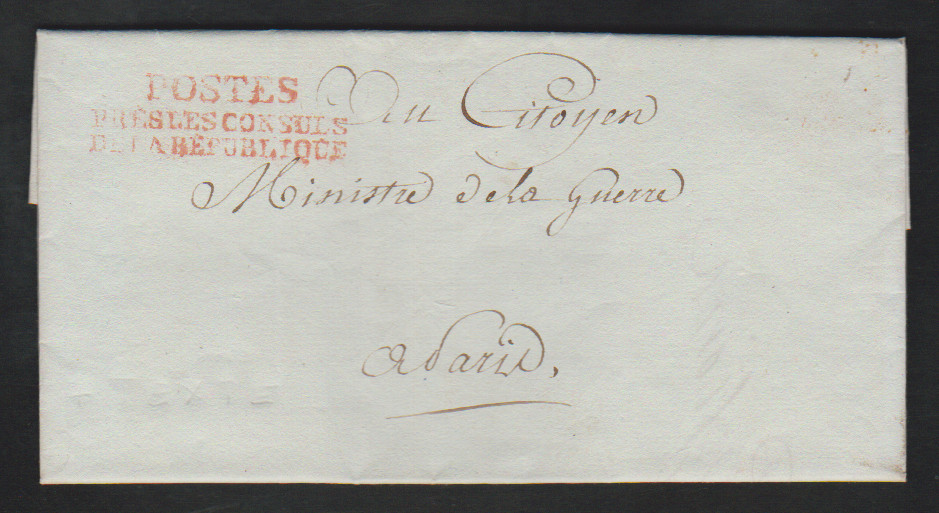 POSTES
PRÈS LES CONSULS
DE LA RÉPUBLIQUE
Au Citoyen
Ministre de la Guerre
a Paris,